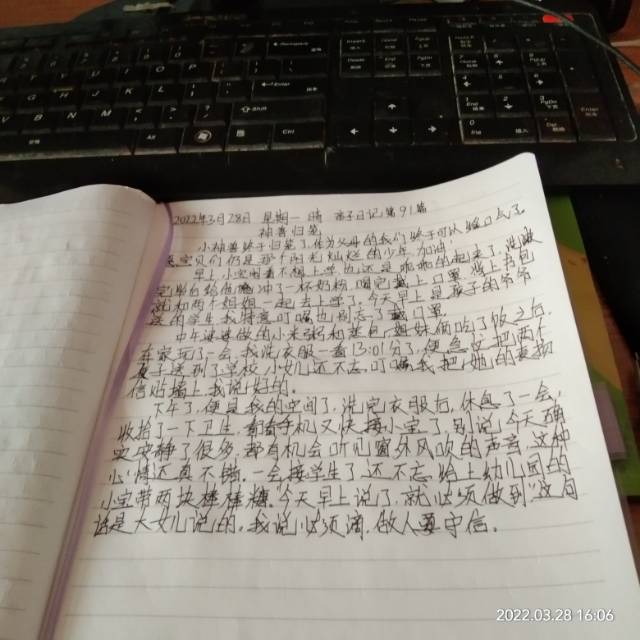 2022年3月28日 星期一 晴 亲子日记第91篇
神兽归笼
小神兽终于归笼了,作为父母的我们终于可以松口气了
宝贝们仍是那个阳光灿烂的少年,加油!
早上,小宝哼着不想上学,也还是乖乖的起来了,洗漱
完,奶奶给他冲了一杯奶粉,喝完戴上口罩,背上书包
和两个姐姐一起去上学了,今天早上是孩子的爷爷
送的学生,我特意叮嘱他别忘了戴口罩
中午婆婆做的小米粥和菜包,姐妹俩吃了饭之后,
在家玩了一会,我洗衣服一看13:01分了,便急忙把两个
孩子送到了学校,小女儿还不忘叮嘱我把她的寒物
信贴墙上,我说好的。
下午了,便是我的空间了,洗完衣服后,休息了一会,
收拾了一下卫生,看看手机又快接小宝了,别说,今天确
实安静了很多,都有机会听见窗外风吹的声音,这种
心情还真不错。一会接学生了还不忘给上幼儿园的
小宝带两块棒棒糖,今天早上说了,就必须做到"这句
话是大女儿说的,我说必须滴,做人要守信。
2022.03.28 16:06